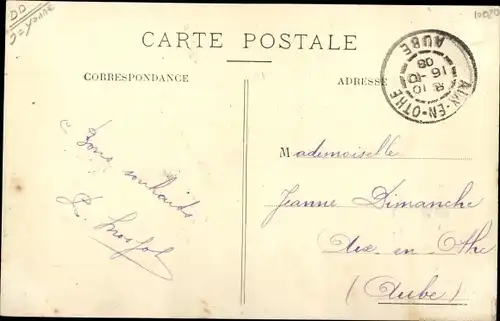 DD
Yonne
CARTE POSTALE
CORRESPONDANCE
ADRESSE
AIX-EN-OTHE
AUBE
16-10
08
Bons souhaits
Mademoiselle
Jeanne Dimanche
Aix en Othe
(Aube)